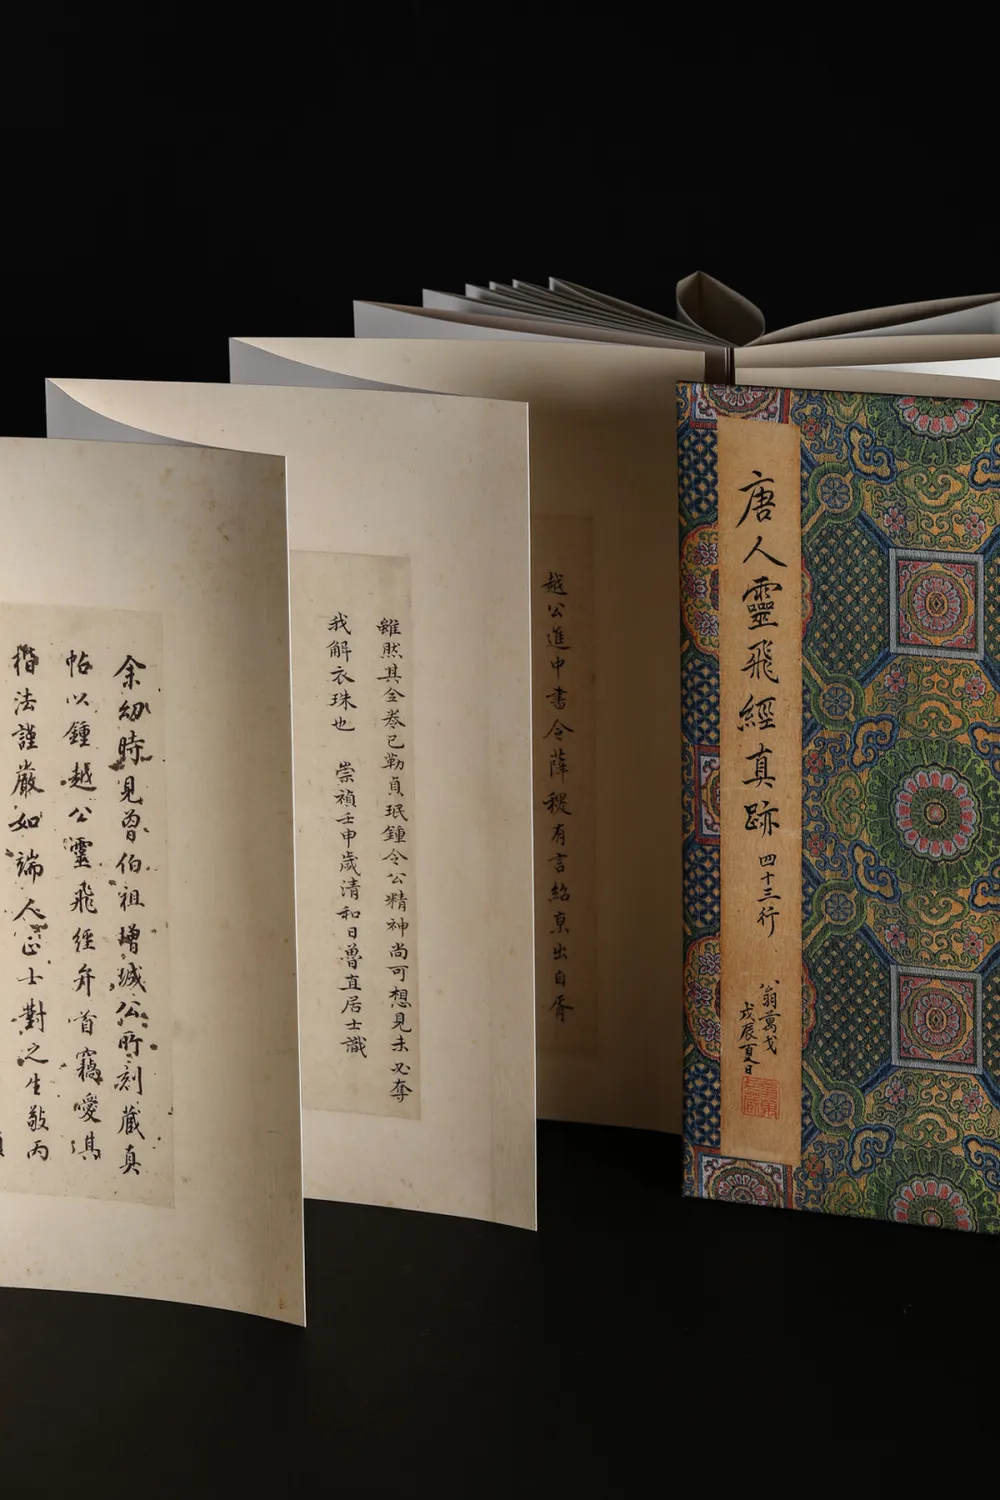 唐人靈飛經真跡 四十三行
翁萬戈
戊辰夏日
越公進中書令薛稷有言紹京出自胥
雖然其全卷已勒貞珉鍾令公精神尚可想見未必奪
我解衣珠也 崇禎壬申歲清和日魯直居士識
余幼時見曾伯祖增城公所刻藏真
帖以鍾越公靈飛經弁首竊嗳其
楷法謹嚴如端人正士對之生敬丙